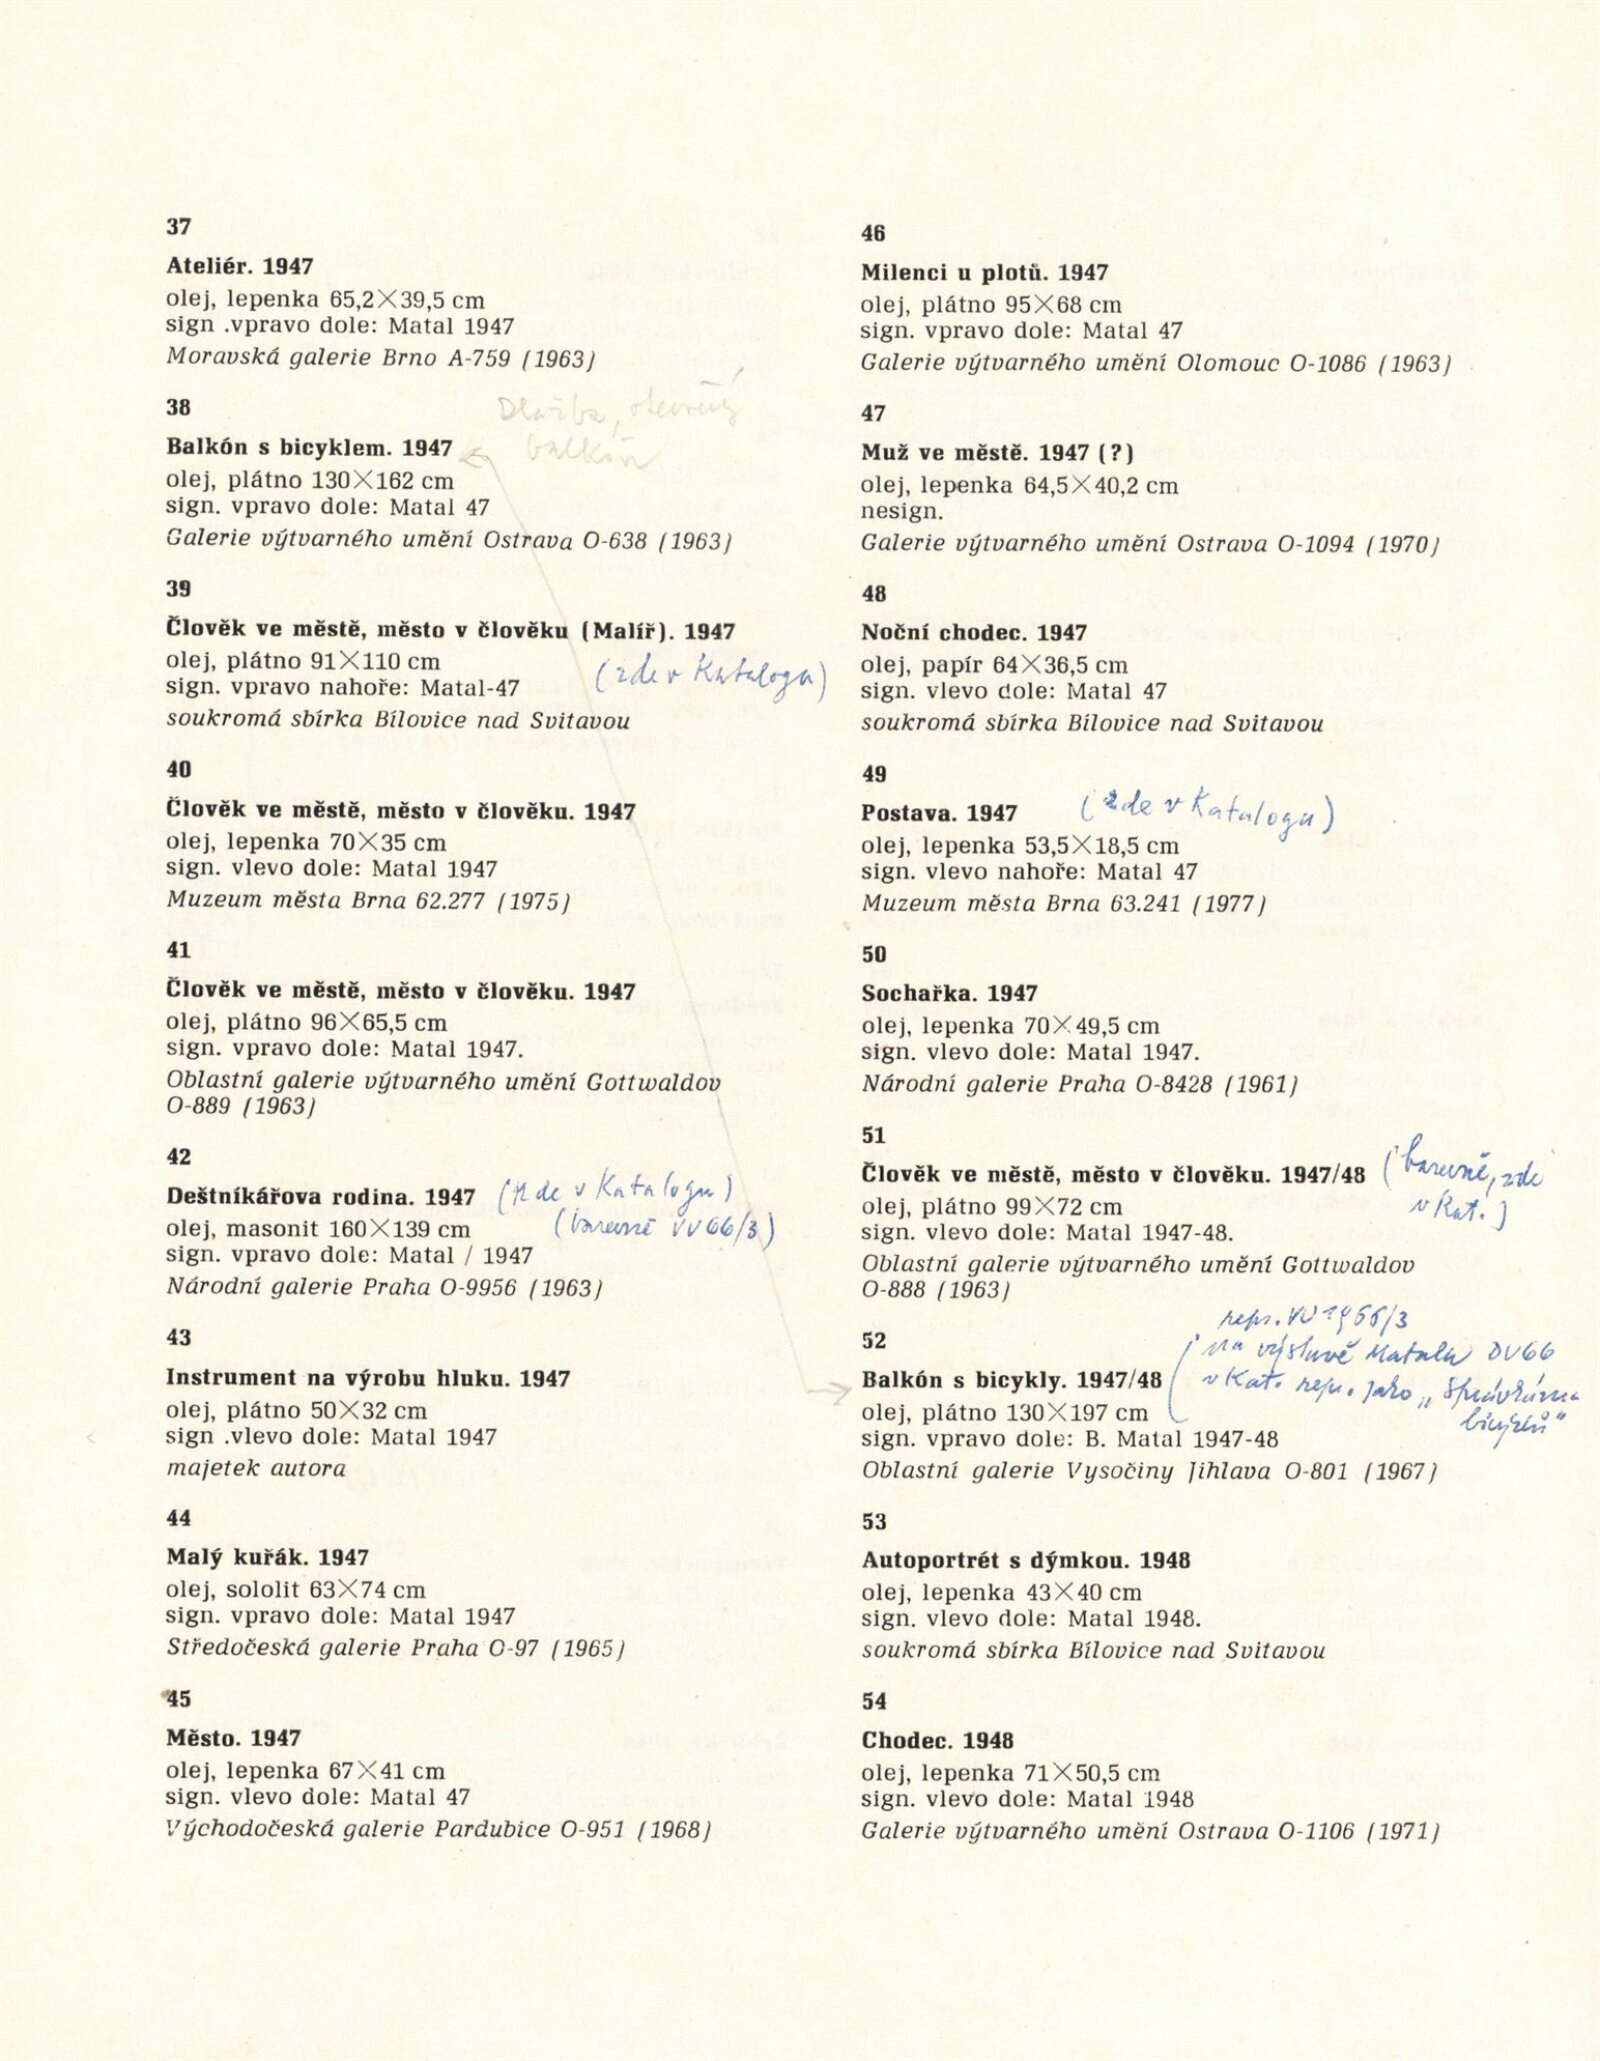 37
Ateliér. 1947
olej, lepenka 65,2×39,5 cm
sign .vpravo dole: Matal 1947
Moravská galerie Brno A-759 (1963)
38
Dlažba, otevřený
balkón
Balkón s bicyklem. 1947
olej, plátno 130×162 cm
sign. vpravo dole: Matal 47
Galerie výtvarného umění Ostrava O-638 (1963)
39
Člověk ve městě, město v člověku (Malíř). 1947
olej, plátno 91×110 cm
(zde v Katalogu)
sign. vpravo nahoře: Matal-47
soukromá sbírka Bílovice nad Svitavou
40
Člověk ve městě, město v člověku. 1947
olej, lepenka 70×35 cm
sign. vlevo dole: Matal 1947
Muzeum města Brna 62.277 (1975)
41
Člověk ve městě, město v člověku. 1947
olej, plátno 96×65,5 cm
sign. vpravo dole: Matal 1947.
Oblastní galerie výtvarného umění Gottwaldov
O-889 (1963)
42
Deštníkářova rodina. 1947 (zde v Katalogu)
olej, masonit 160×139 cm (barevně VU 66/3)
sign. vpravo dole: Matal / 1947
Národní galerie Praha O-9956 (1963)
43
Instrument na výrobu hluku. 1947
olej, plátno 50×32 cm
sign .vlevo dole: Matal 1947
majetek autora
44
Malý kuřák. 1947
olej, sololit 63×74 cm
sign. vpravo dole: Matal 1947
Středočeská galerie Praha O-97 (1965)
45
Město. 1947
olej, lepenka 67×41 cm
sign. vlevo dole: Matal 47
Východočeská galerie Pardubice O-951 (1968)
46
Milenci u plotů. 1947
olej, plátno 95×68 cm
sign. vpravo dole: Matal 47
Galerie výtvarného umění Olomouc O-1086 (1963)
47
Muž ve městě. 1947 (?)
olej, lepenka 64,5×40,2 cm
nesign.
Galerie výtvarného umění Ostrava O-1094 (1970)
48
Noční chodec. 1947
olej, papír 64×36,5 cm
sign. vlevo dole: Matal 47
soukromá sbírka Bílovice nad Svitavou
49
Postava. 1947 (zde v Katalogu)
olej, lepenka 53,5×18,5 cm
sign. vlevo nahoře: Matal 47
Muzeum města Brna 63.241 (1977)
50
Sochařka. 1947
olej, lepenka 70×49,5 cm
sign. vlevo dole: Matal 1947.
Národní galerie Praha O-8428 (1961)
51
Člověk ve městě, město v člověku. 1947/48 (barevně, zde
v Kat.)
olej, plátno 99×72 cm
sign. vlevo dole: Matal 1947-48.
Oblastní galerie výtvarného umění Gottwaldov
O-888 (1963)
repr. VU 1966/3
52
(na výstavě Matala DU66
Balkón s bicykly. 1947/48
v Kat. repr. jako „Správkárna
bicyklů"
olej, plátno 130×197 cm
sign. vpravo dole: B. Matal 1947-48
Oblastní galerie Vysočiny Jihlava O-801 (1967)
53
Autoportrét s dýmkou. 1948
olej, lepenka 43×40 cm
sign. vlevo dole: Matal 1948.
soukromá sbírka Bílovice nad Svitavou
54
Chodec. 1948
olej, lepenka 71×50,5 cm
sign. vlevo dole: Matal 1948
Galerie výtvarného umění Ostrava O-1106 (1971)